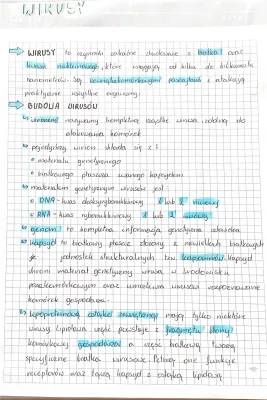 WIRUSY
→ WIRUSY to czynniki zakaźne zbudowane z białka oraz
kwasu nukleinowego, które mają od kilku do kilkuset
nanometrów. Są wewnątrzkomórkowymi pasożytami i atakują
praktycznie wszystkie organizmy.
→ BUDOWA WIRUSÓW
wirionem nazywamy kompletną cząstkę wirusa zdolną do
atakowania komórek
pojedynczy wirion składa się z:
materiału genetycznego
białkowego płaszcza zwanego kapsydem
materiałem genetycznym wirusów jest
DNA - kwas deoksyrybonukleinowy 1 lub 2 niciowy
RNA - kwas rybonukleinowy 1 lub 2 niciowy
genom to kompletna informacja genetyczna
kapsyd to białkowy płaszcz złożony z niewielkich białkowych
jednostek strukturalnych tzw. kapsomerów. Kapsyd
chroni materiał genetyczny wirusa w środowisku
pozakomórkowym oraz umożliwia wirusom rozpoznawanie
komórek gospodarza.
lipoproteinową osłonkę zewnętrzną mają tylko niektóre
wirusy. Lipidowa część powstaje z fragmentu błony
komórkowej gospodarza a część białkową tworzą
specyficzne białka wirusowe. Pełnią one funkcje
receptorów oraz łączą kapsyd z osłonką lipidową